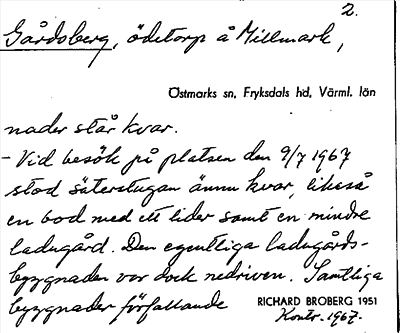 2.
Gårdsberg, ödetorp å Millmark,
Östmarks sn, Fryksdals hd, Värml. län
nader står kvar.
- Vid besök på platsen den 9/7 1967
stod säterstugan ännu kvar, likeså
en bod med ett lider samt en mindre
ladugård. Den egentliga ladugårds-
byggnaden var dock nedriven. Samtliga
byggnader förfallande
RICHARD BROBERG 1951
Kontr. 1967.